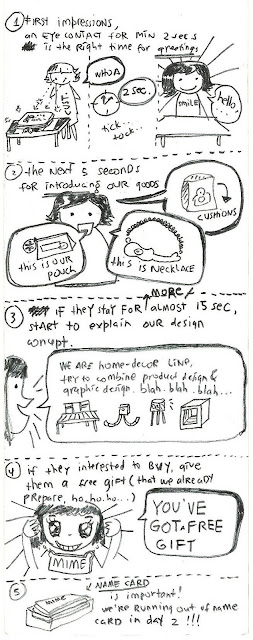 1 First impressions,
an EYE CONTACT FOR MIN 2 secs
is the right time for greetings
WHOA
2 sec.
tick...
tock...
SMILE
hello
2 the next 5 seconds
for introducing our goods
CUSHIONS
this is our
POUCH
this is NECKLACE
more
3 if they stay for almost 15 sec,
start to explain our design
concept.
WE ARE home-decor LINE,
try to combine product design &
graphic design. blah. blah. blah...
4 if they interested to BUY, give
them a free gift (that we already
PREPARE, ho. ho. ho...)
MIME
YOU'VE
GOT A FREE
GIFT
5 mime
NAME CARD
is important!
we're RUNNING OUT OF NAME
CARD in day 2 !!!